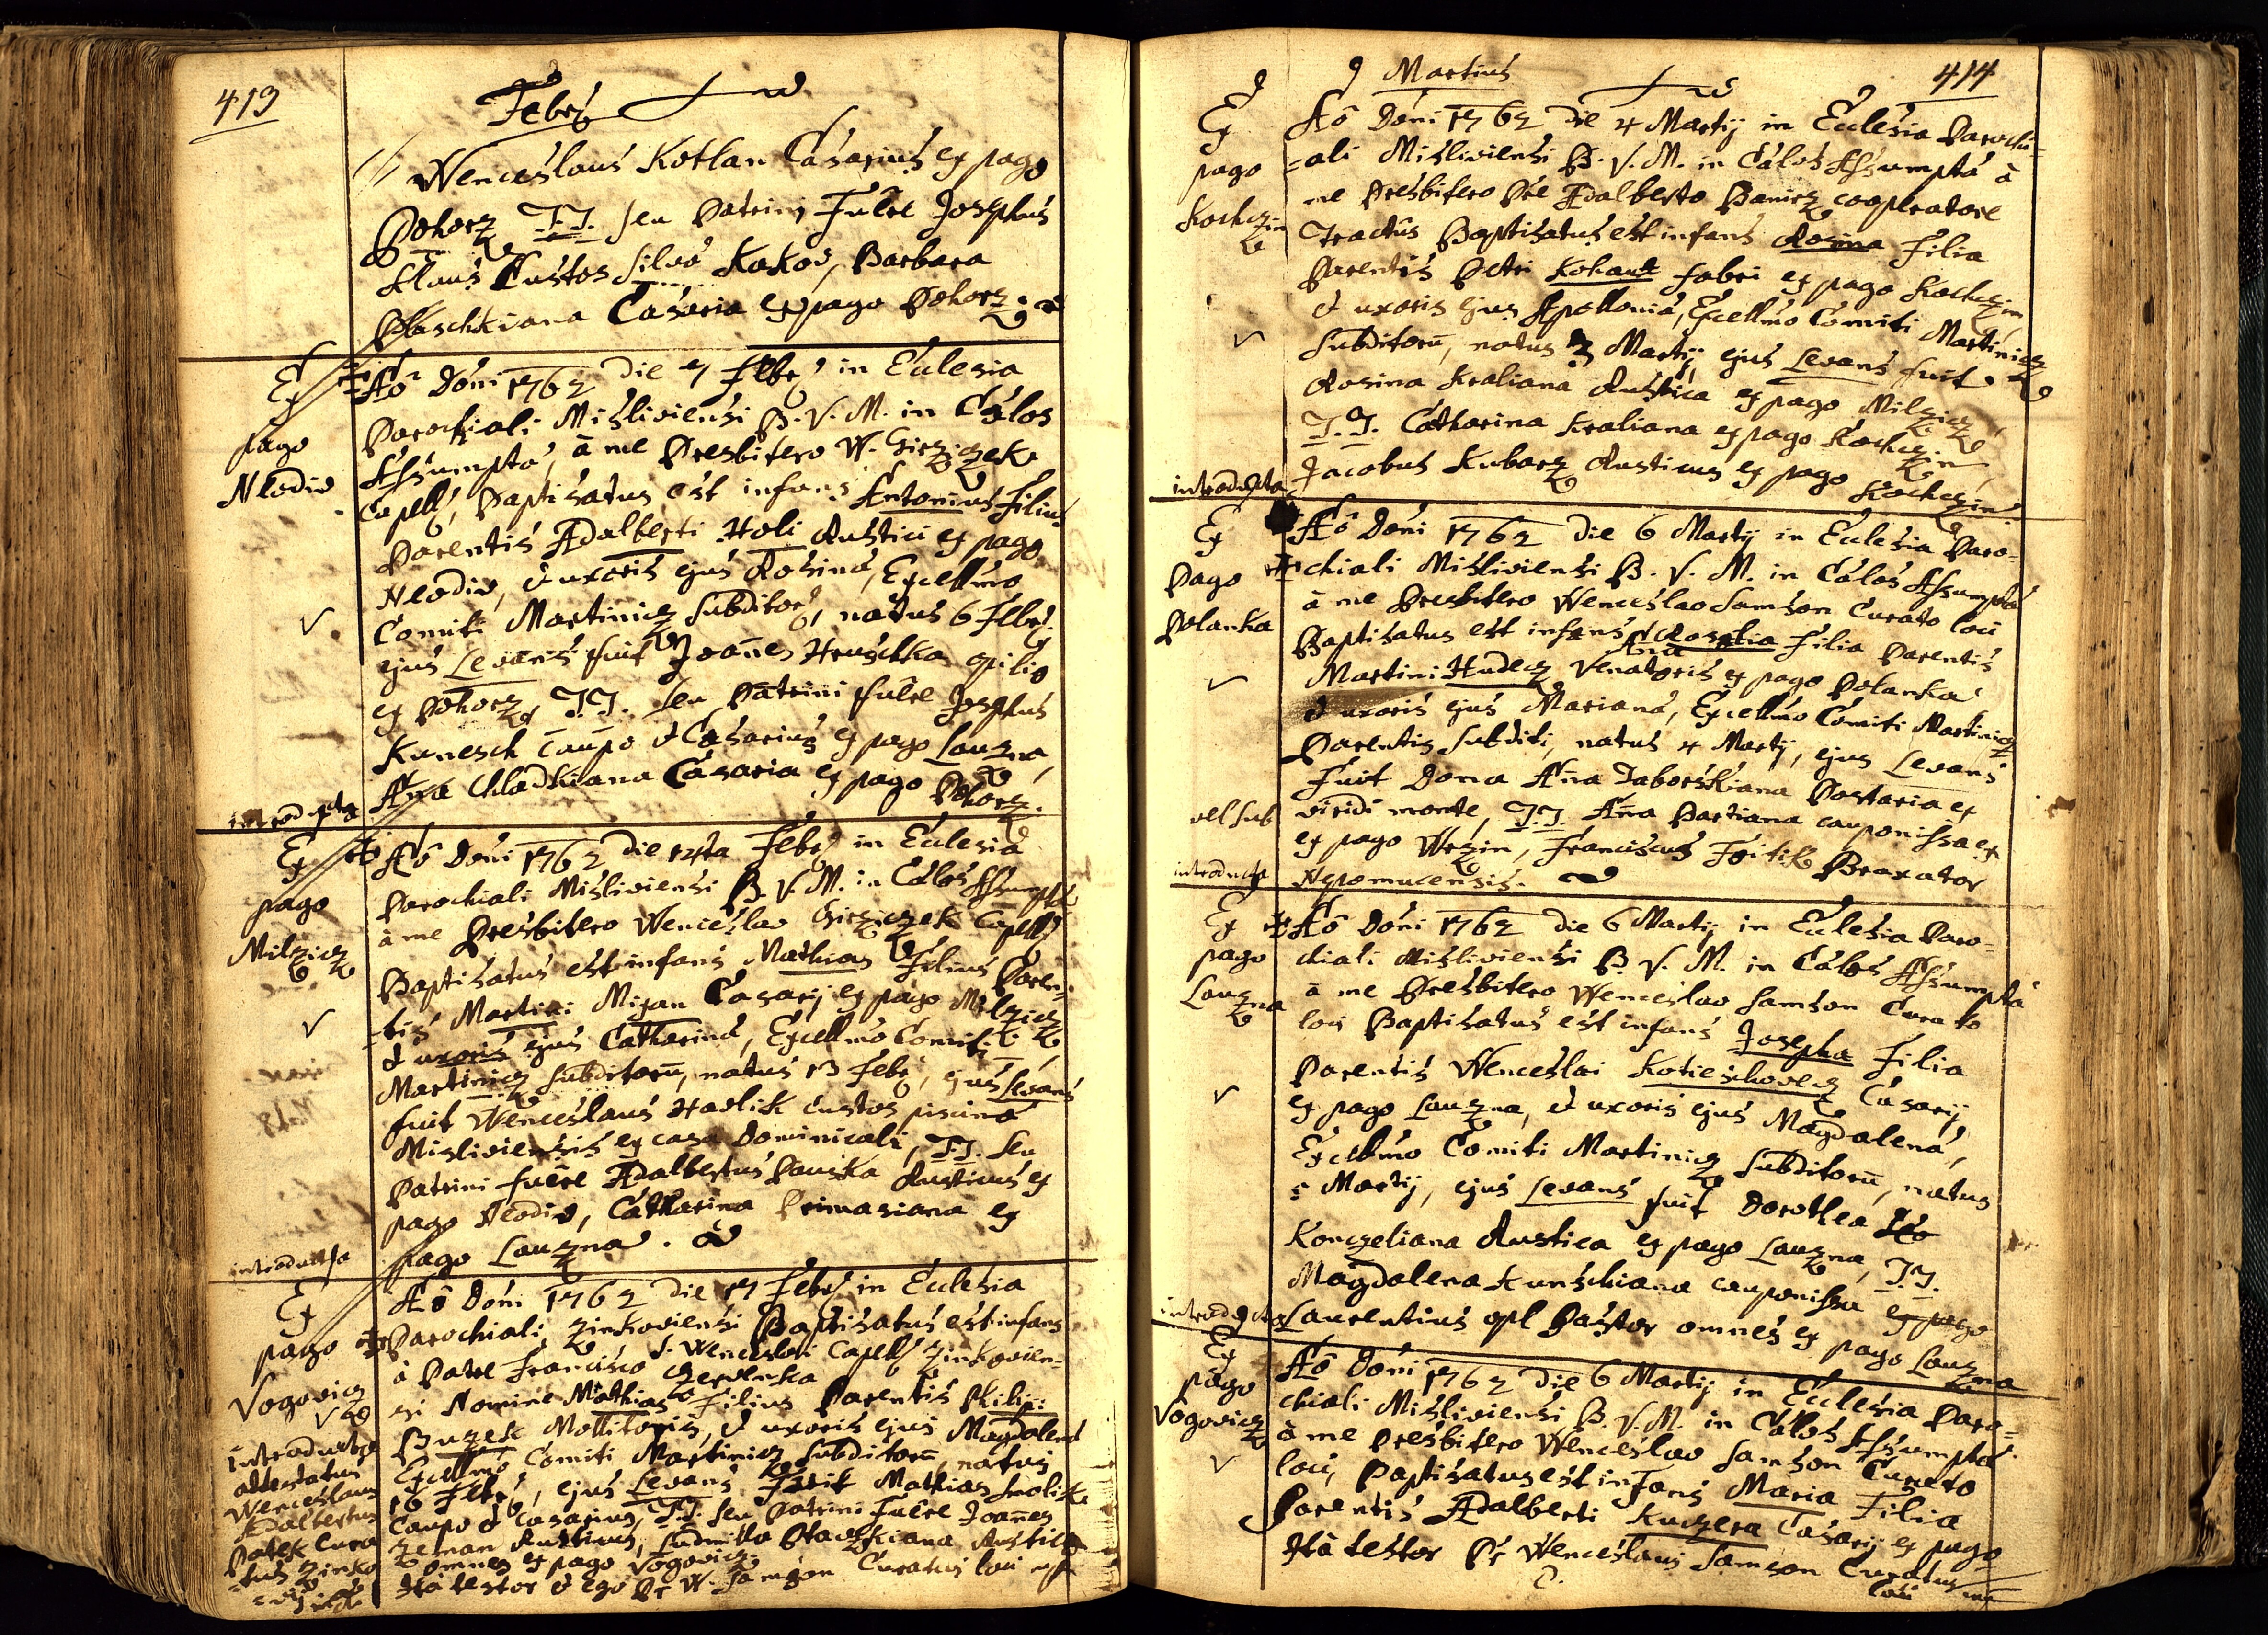 413
Febr
Wenceslaus Kotlan Casarius ex pago
Pohorz T.T. seu Patrini Fuêre Josephus
Klaus Custos silvæ Kokov, Barbara
Plaschkiana Casaria ex pago Pohorz.
Ex
pago
Neodiv
introducta
Aô Dôni 1762 die 7 Febr in Eclesia
Parochiali Misliviensi B. V. M. in Cælos
Assumptæ, à me Presbitero W. Girziczek
Capell, Baptisatus est infans Antonius Filius
Parentis Adalberti Holi Rustici ex pago
Neodiv, et uxoris ejus Rosinæ, Excellmo
Comiti Martinicz subditor, natus 6 Febr.
ejus Levans fuit Joanes Hruschka opilio
ex Pohorz, T.T. seu Patrini fuêre Josephus
Kunesch Caupo et Casarius ex pago Lauzna,
Ana Chladkiana Casaria ex pago Pohorz.
Ex
pago
Milzicz
introducta
Aô Dôni 1762 die 14ta Febr in Eclesia
Parochiali Misliviensi B. V. M. in Cælos Assumptæ
à me Presbitero Wenceslao Girziczek Capell
Baptisatus est infans Mathias Filius Paren-
-tis Martini Mizan Casarij ex pago Milzicz
et uxoris ejus Catharinæ, Excellmo Comiti
Martinicz subditorū, natus 13 Febr, ejus Levans
fuit Wenceslaus Havlik custos piscinæ
Misliviensis ex casa Dominicali, T.T. seu
Patrini fuêre Adalbertus Pauska Rusticus ex
pago Neodiv, Catharina Primasiana ex
pago Lauzna.
Ex
pago
Vogovicz
introducta
attestatus
Wenceslaus
Adalbertus
Patek Cura
-tus Zinko
Aô Dôni 1762 die 17 Febr in Eclesia
Parochiali Zinkoviensi Baptisatus est infans
à Patre Francisco Czervenka S. Wenceslai Capell Zinkovien-
-si Nomine Mathias Filius Parentis Philipi
Buzek Mollitoris, et uxoris ejus Magdalenæ
Excellmo Comiti Martinicz subditorū, natus
16 Febr, ejus Levans Fuit Mathias Smolik
Caupo et Casarius, T.T. seu Patrini Fuêre Joañes
Zeman Rusticus, Ludmilla Rustica
omnes ex pago Vogovicz.
Ita testor et ego Pr W. Samson Curatus loci mp
414
Martius
Ex
pago
Kochczin
introducta
Aô Dôni 1762 Die 4 Martij in Eclesia Parochi-
-ali Misliviensi B. V. M. in Cælos Assumptæ à
me Presbitero Pre Adalberto Banirz cooperatore
Tractûs Baptisatus est infans Rosina Filia
Parentis Petri Kohaut fabri ex pago Kochczin
et uxoris ejus Apolloniæ, Excellmo Comiti Martinicz
Subditorū, natus 3 Martij, ejus Levans fuit
Rosina Kraliana Rustica ex pago Milzicz,
T.T. Catharina Kraliana ex pago Kochczin,
Jacobus Kubarz Rusticus ex pago Kochczin
Ex
Pago
Polanka
vel sub
introducta
Aô Dôni 1762 Die 6 Martij in Eclesia Paro-
chiali Misliviensi B. V. M. in Cælos Assumptæ
à me Presbitero Wenceslao Samson Curato loci
Baptisatus est infans Ana Rosalia Filia Parentis
Martini Hudecz Venatoris ex pago Polanka
et uxoris ejus Marianæ, Excellmo Comiti Martinicz
Parentis subditi, natus 4 Martij, ejus Levans
Fuit Domna Ana Taborskiana Postaria ex
viridi monte, T.T. Ana Bartiana cauponissa ex
ex pago Wrzin, Franciscus Foitik Braxator
Nepomucensis.
Ex
pago
Lauzna
introducta
Aô Dôni 1762 die 6 Martij in Eclesia Paro-
chiali Misliviensi B. V. M. in Cælos Assumptæ
à me Presbitero Wenceslao Samson Curato
loci Baptisatus est infans Josepha Filia
Parentis Wenceslai Kotieschovecz Casarij
ex pago Lauzna, et uxoris ejus Magdalenæ,
Excellmo Comiti Martinicz Subditorū, natus
5 Martij, ejus Levans fuit Dorothea
Konczeliana Rustica ex pago Lauzna, T.T.
Magdalena Kunschiana cauponissa ex pago
Laurentius opl Pastor omnes ex pago Lauzna
Ex
pago
Vogovicz
Aô Dôni 1762 Die 6 Martij in Ecclesia Paro-
chiali Misliviensi B. V. M. in Cælos Assumptæ
à me Presbitero Wenceslao Samson Curato
loci, Baptisatus est infans Maria Filia
Parentis Adalberti Kuczera Casarij ex pago
Ita testor Pr Wenceslaus Samson Curatus
loci mp